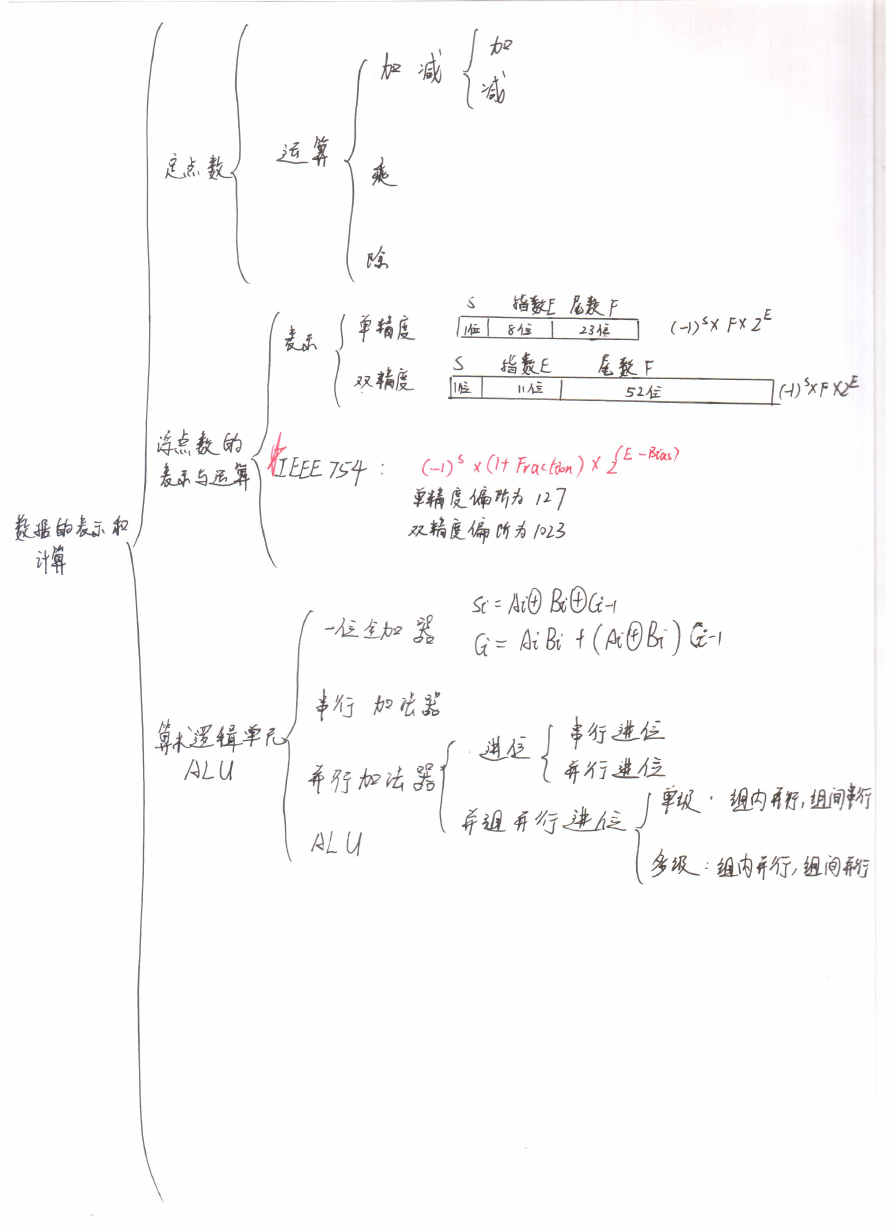 加
加 减
减
运算
定点数
乘
除
S 指数E 尾数F
单精度 1位 8位 23位 (-1)^S × F × 2^E
表示
S 指数E 尾数F
双精度 1位 11位 52位 (-1)^S × F × 2^E
浮点数的
表示与运算
IEEE 754 : (-1)^S × (1+Fraction) × 2^(E-Bias)
单精度偏阶为 127
双精度偏阶为 1023
数据的表示和
计算
Si = Ai⊕Bi⊕Ci-1
一位全加器
Ci = AiBi + (Ai⊕Bi) Ci-1
串行加法器
串行进位
算术逻辑单元
ALU
进位
并行加法器
并行进位
单级 · 组内并行,组间串行
并组并行进位
ALU
多级 : 组内并行,组间并行